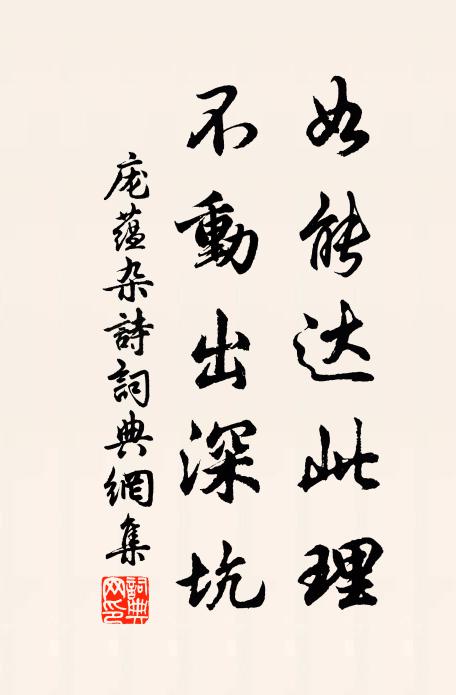 如能达此理
不動出深坑
庞蕴杂詩詞典網集
詞典网印